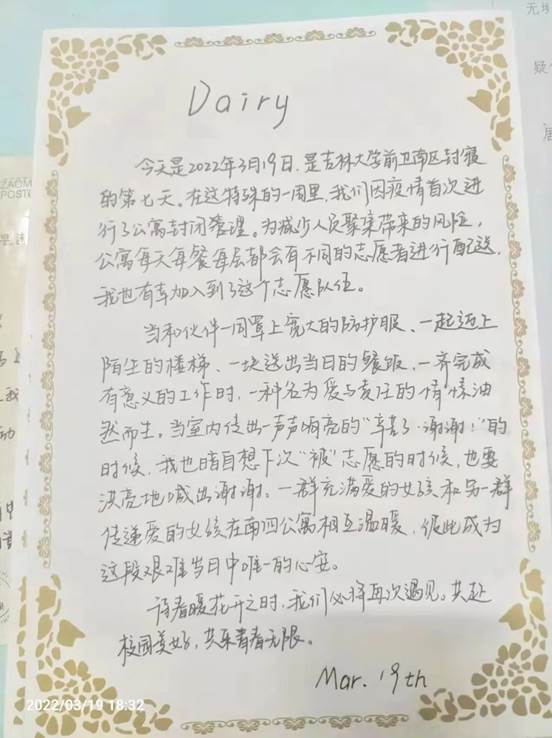 Dairy
今天是2022年3月19日，是吉林大学前卫南区封寝
的第七天。在这特殊的一周里，我们因疫情首次进
行了公寓封闭管理。为减少人员聚集带来的风险，
公寓每天每餐每层都会有不同的志愿者进行配送，
我也有幸加入到了这个志愿队伍。
当和伙伴一同罩上宽大的防护服、一起迈上
陌生的楼梯、一块送出当日的餐饭、一齐完成
有意义的工作时，一种名为爱与责任的情愫油
然而生。当室内传出一声声响亮的“辛苦了，谢谢！”的
时候，我也暗自想下次“被”志愿的时候，也要
决亮地喊出谢谢。一群充满爱的女孩和另一群
传递爱的女孩在南四公寓相互温暖，彼此成为
这段艰难当日中唯一的心安。
待春暖花开之时，我们必将再次遇见。共赴
校园美好，共乐青春无限。
Mar. 19th
2022/03/19 18:32
ZAOM
POSTE